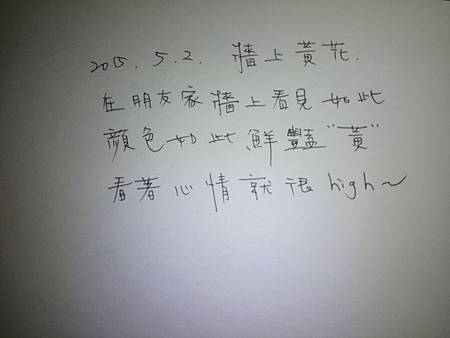 2015.5.2. 牆上黃花.
在朋友家牆上看見如此
顏色如此鮮豔"黃"
看著心情就很high~